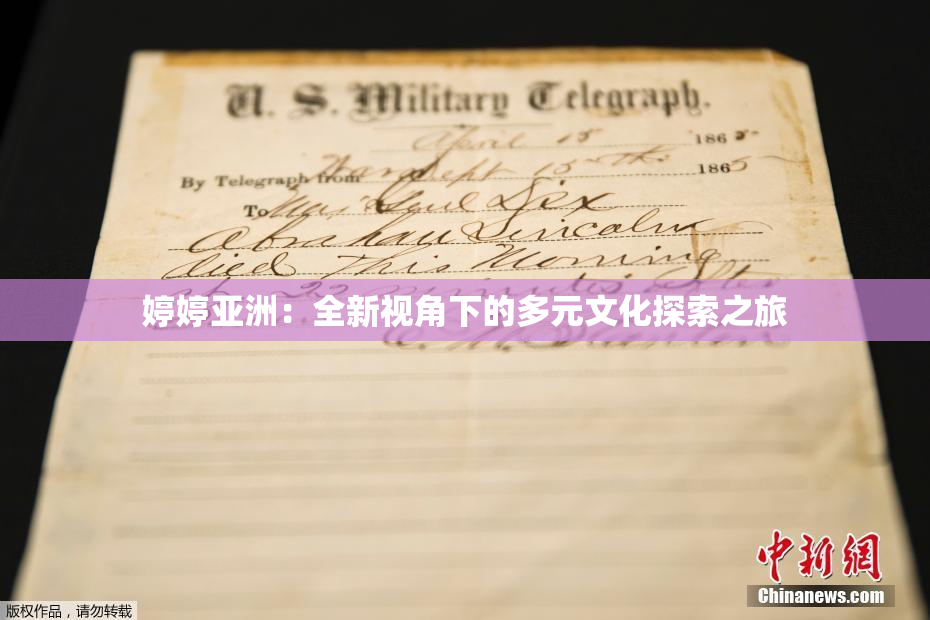 U. S. Military Telegraph.
April 15 1865
By Telegraph from War Dept 15th 1865
To Maj Genl Dix
Abraham Lincoln
died This Morning
at 22 minutes after
婷婷亚洲：全新视角下的多元文化探索之旅
E. M. Stanton
中新网
Chinanews.com
版权作品，请勿转载